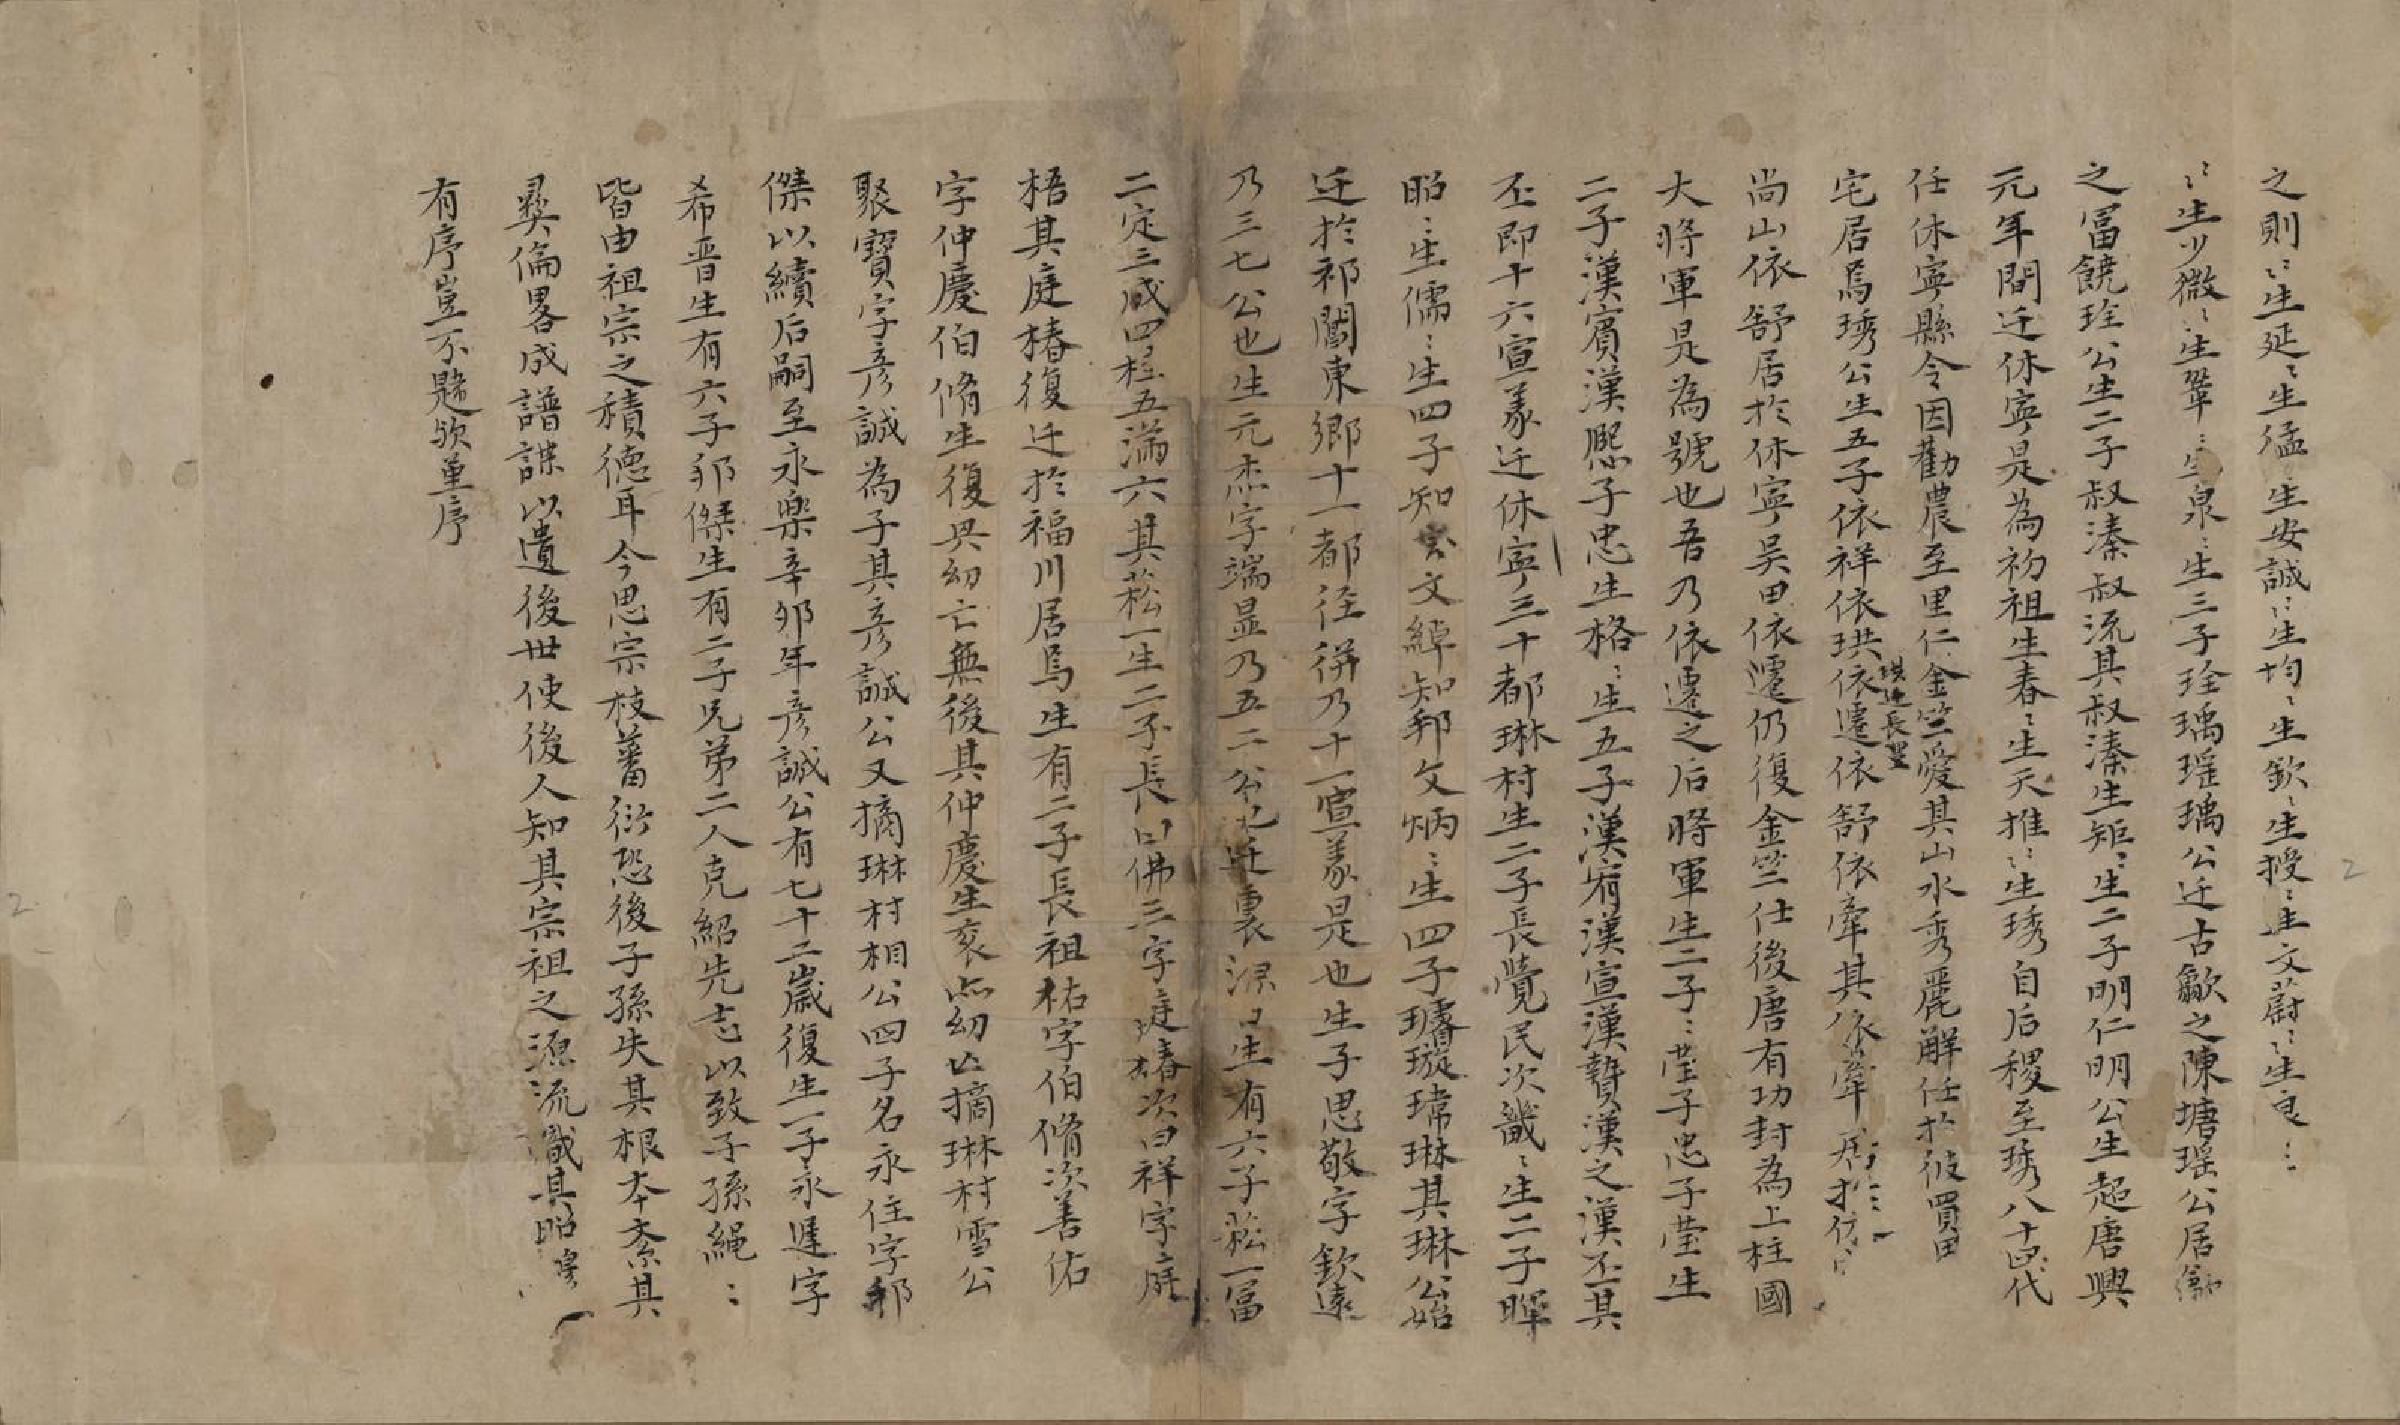 之則〻生延〻生猛〻生安誠〻生均〻生欽〻生授〻生文蔚〻生良〻
〻生少微〻生鞏〻生泉〻生三子玹瑀瑶瑀公迁古歙之陳塘瑶公居
之富饒玹公生二子叔溱叔流其叔溱生矩〻生二子明仁明公生起唐興
元年間迁休寧是為初祖生春〻生天推〻生琇自后稷至琇八十四代
任休寧縣令因勸農至里仁金竺愛其山水秀麗解任於彼買田
珙迁長豐
宅居焉琇公生五子依祥依珙依遷依舒依牽其依牽居於
尚山依舒居於休寧吴田依遷仍復金竺仕後唐有功封為上柱國
大將軍是為號也吾乃依遷之后將軍生二子〻瑩子忠子瑩生
二子漢賓漢熈子忠生格〻生五子漢宥漢宣漢贄漢之漢丕其
丕即十六宣義迁休寧三十都琳村生二子長覺民次畿〻生二子暉
昭〻生儒〻生四子知文綽知邦文炳〻生四子璿璇瑋琳其琳公始
迁於祁閶東鄉十一都徑併乃十一宣義是也生子思敬字欽遠
乃三七公也生元杰字端显乃五二公也迁裏源生有六子菘一富
二定三成四桂五滿六其菘一生二子長曰佛三字庭椿次曰祥字庭
梧其庭椿復迁於福川居焉生有二子長祖祐字伯脩次善佑
字仲慶伯脩生復興幼亡無後其仲慶生亥点幼亡摘琳村雪公
聚寶字彦誠為子其彦誠公又摘琳村相公四子名永住字邦
傑以續后嗣至永樂辛夘年彦誠公有七十二歲復生一子永遲字
希晋生有六子邦傑生有二子兄弟二人克紹先志以致子孫繩〻
皆由祖宗之積德耳今思宗枝蕃衍恐後子孫失其根本紊其
彛倫畧成譜諜以遺後世使後人知其宗祖之源流識其昭
有序豈不韙歟菫序